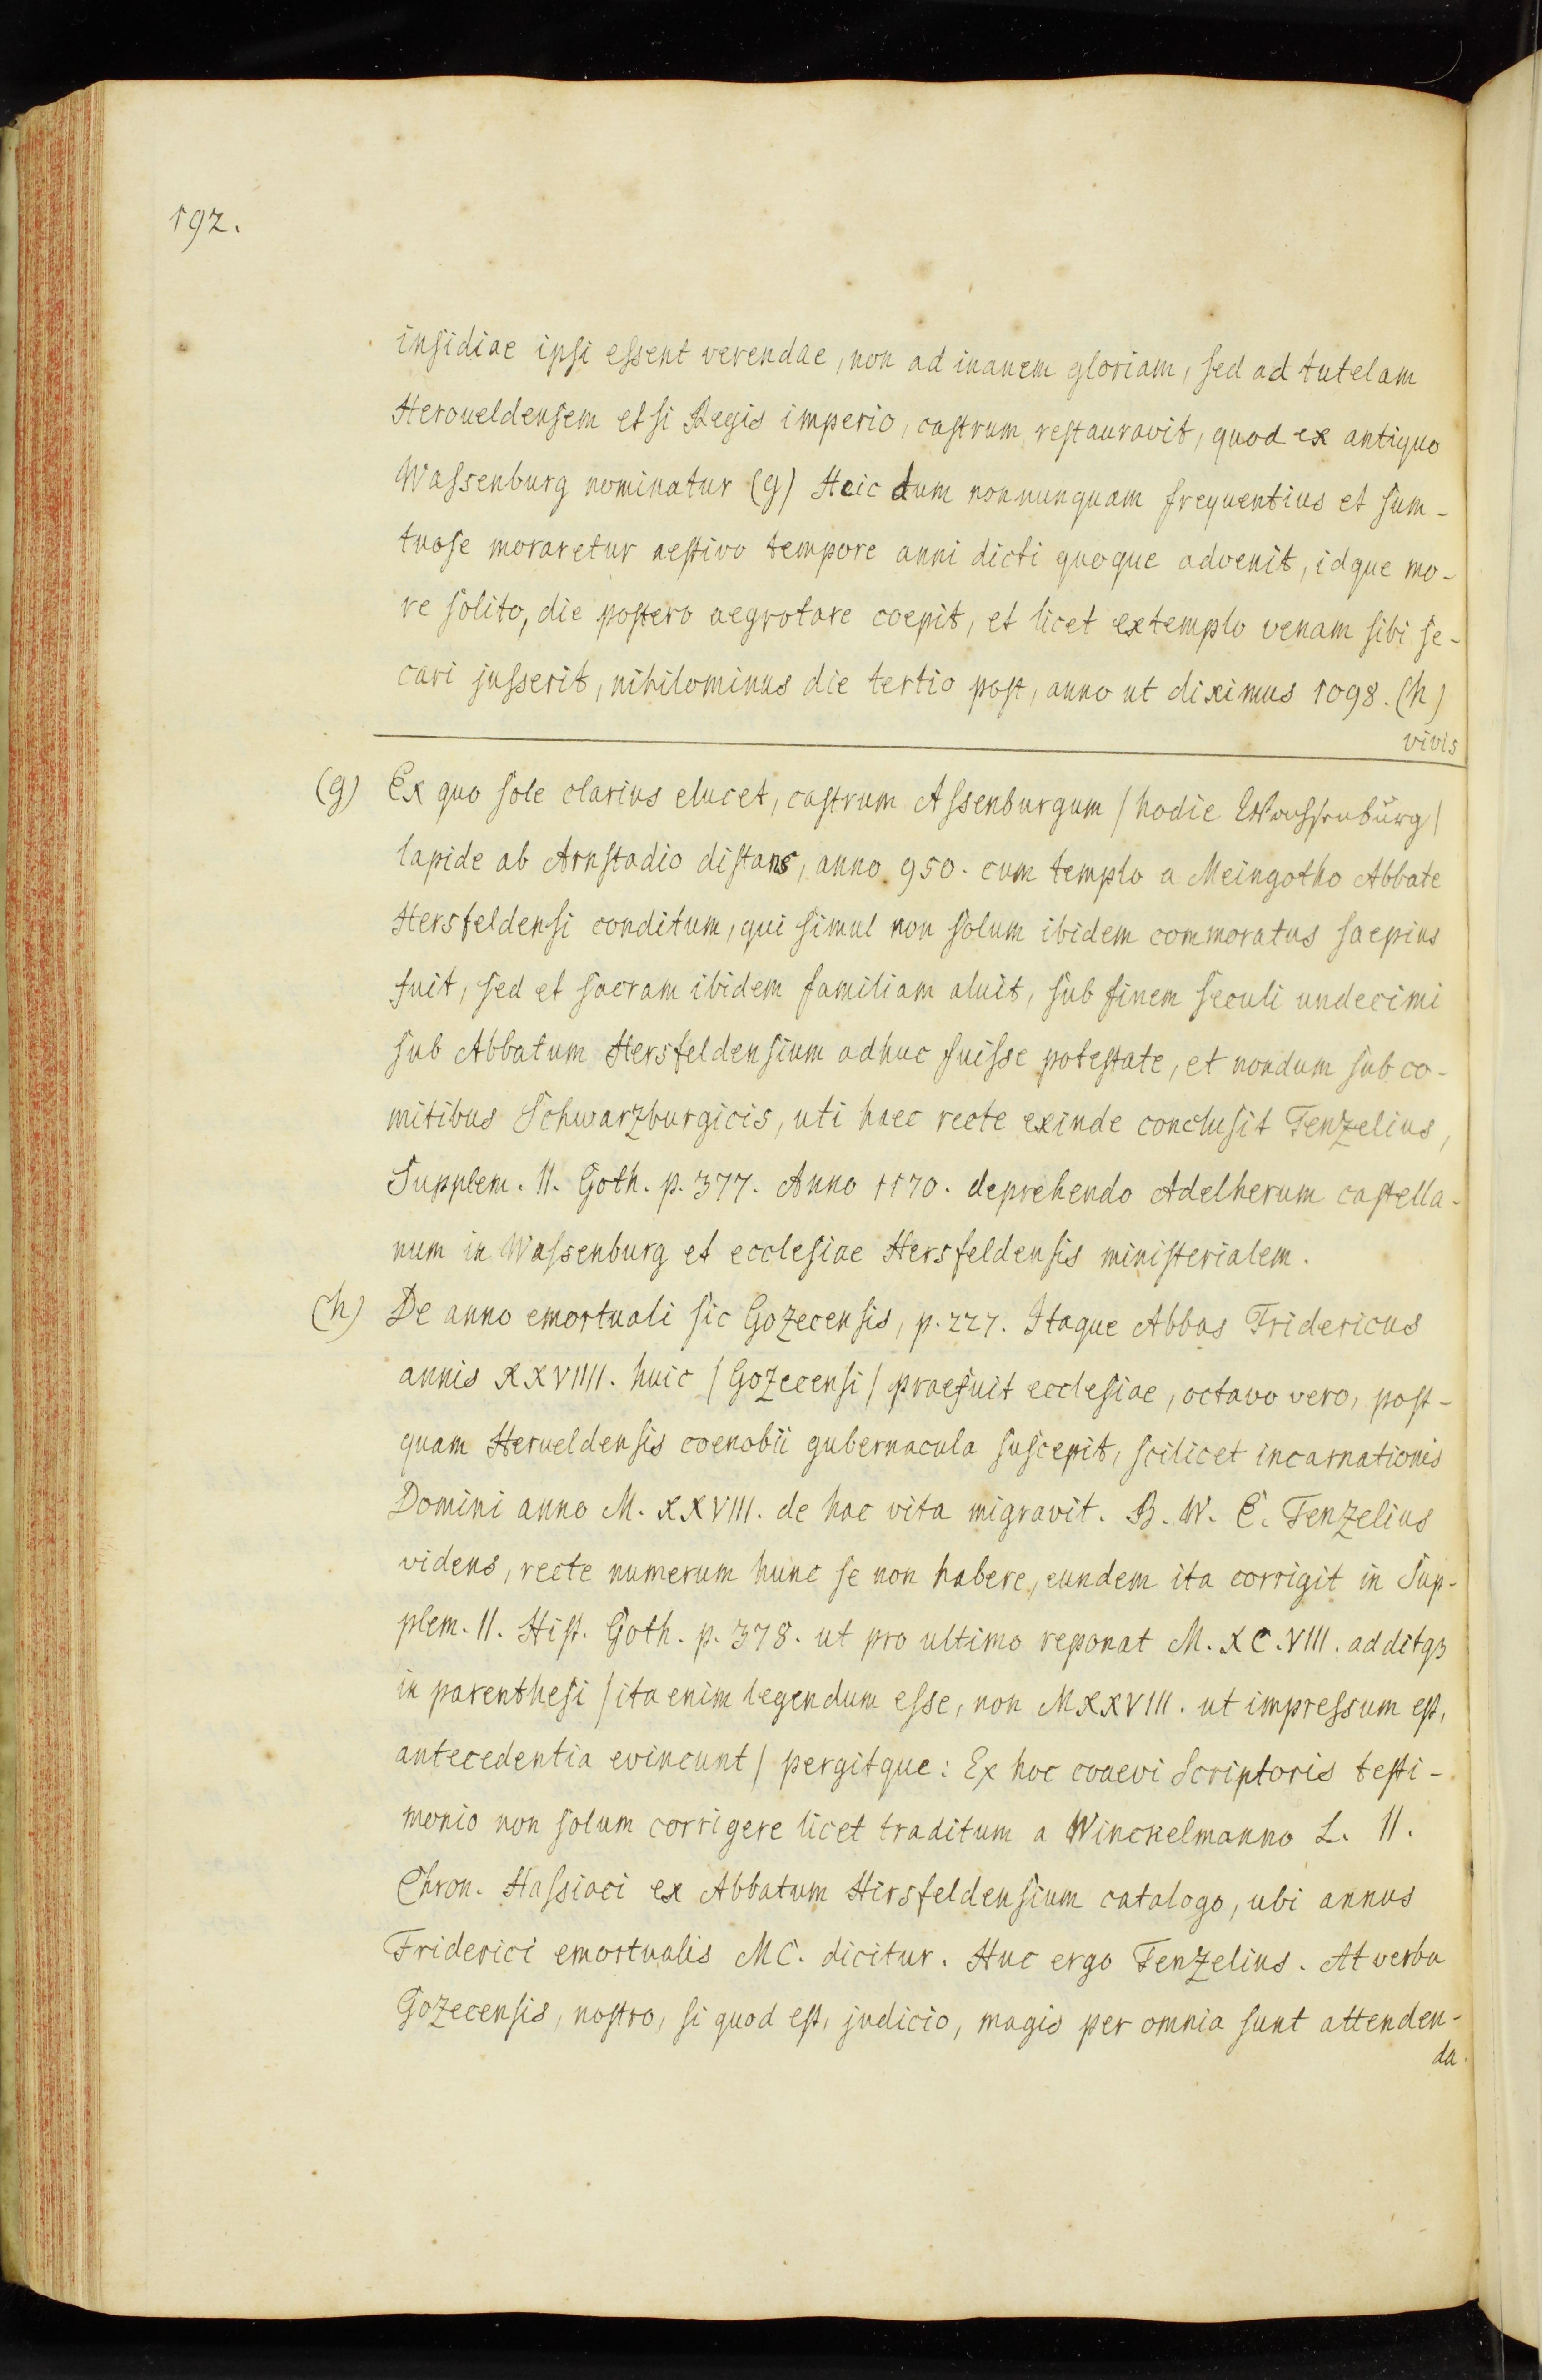 192.
insidiae ipsi essent verendae, non ad inanem gloriam, sed ad tutelam
Heroueldensem etsi Regis imperio, castrum restauravit, quod ex antiquo
Wassenburg nominatur (g) Heic dum nonnunquam frequentius et sum-
tuose moraretur aestivo tempore anni dicti quoque advenit, idque mo-
re solito, die postero aegrotare coepit, et licet extemplo venam sibi se-
cari jusserit, nihilominus die tertio post, anno ut diximus 1098. (h)
vivis
(g) Ex quo sole clarius elucet, castrum Assenburgum / hodie Wassenburg /
lapide ab Arnstadio distans, anno 950. cum templo a Meingotho Abbate
Hersfeldensi conditum, qui simul non solum ibidem commoratus saepius
fuit, sed et sacram ibidem familiam aluit, sub finem seculi undecimi
sub Abbatum Hersfeldensium adhuc fuisse potestate, et nondum sub co-
mitibus Schwarzburgicis, uti haec recte exinde conclusit Tenzelius,
Supplem. II. Goth. p. 377. Anno 1170. deprehendo Adelherum castella-
num in Wassenburg et ecclesiae Hersfeldensis ministerialem.
(h) De anno emortuali sic Gozecensis, p. 227. Itaque Abbas Fridericus
annis XXVIIII. huic / Gozecensi / praefuit ecclesiae, octavo vero, post-
quam Herueldensis coenobii gubernacula suscepit, scilicet incarnationis
Domini anno M. XXVIII. de hac vita migravit. B. W. E. Tenzelius
videns, recte numerum hunc se non habere, eundem ita corrigit in Sup-
plem. II. Hist. Goth. p. 378. ut pro ultimo reponat M. XC. VIII. additqз
in parenthesi / ita enim legendum esse, non MXXVIII. ut impressum est,
antecedentia evincunt / pergitque: Ex hoc coaevi Scriptoris testi-
monio non solum corrigere licet traditum a Winckelmanno L. II.
Chron. Hassiaci ex Abbatum Hirsfeldensium catalogo, ubi annus
Friderici emortualis MC. dicitur. Huc ergo Tenzelius. At verba
Gozecensis, nostro, si quod est, judicio, magis per omnia sunt attenden-
da.